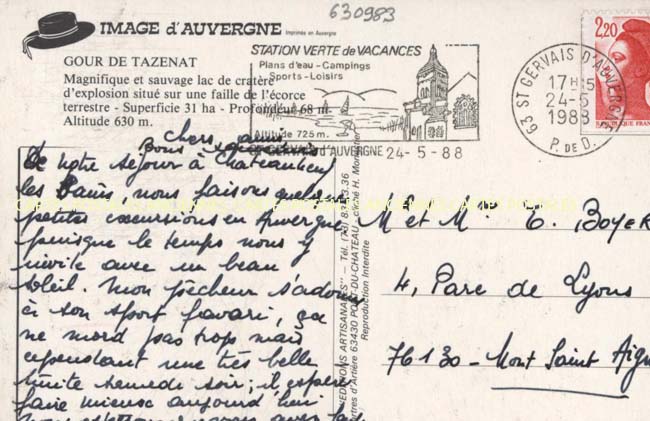 630983
IMAGE d'AUVERGNE Imprimée en Auvergne
GOUR DE TAZENAT
Magnifique et sauvage lac de cratère
d'explosion situé sur une faille de l'écorce
terrestre - Superficie 31 ha - Profondeur 68 m
Altitude 630 m.
STATION VERTE de VACANCES
Plans d'eau - Campings
Sports - Loisirs
Altitude 725 m.
ST GERVAIS d'AUVERGNE 24-5-88
63 ST GERVAIS D'AUVERGNE
17H15
24-5
1988
P. DE D.
2,20
Chers amis
De notre séjour à Chateauneuf
les Bains nous faisons quelques
petites excursions en Auvergne
puisque le temps nous y
invite avec un beau
soleil. Mon pêcheur s'adonne
à son sport favori, ça
ne mord pas trop mais
cependant une très belle
truite samedi soir; il espère
faire mieux aujourd'hui
"EDITIONS ARTISANALES" - Tél. (73) 83.
63430 PONT-DU-CHATEAU - cliché H. Monestier
Reproduction Interdite
M et Mme E. BOYER
4, Parc de Lyons
76130 - Mont Saint Aign